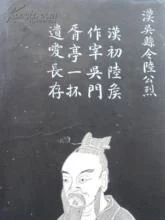 漢吳縣令陸公烈
漢初陸侯
作宰吳門
胥亭一抔
遺愛長存